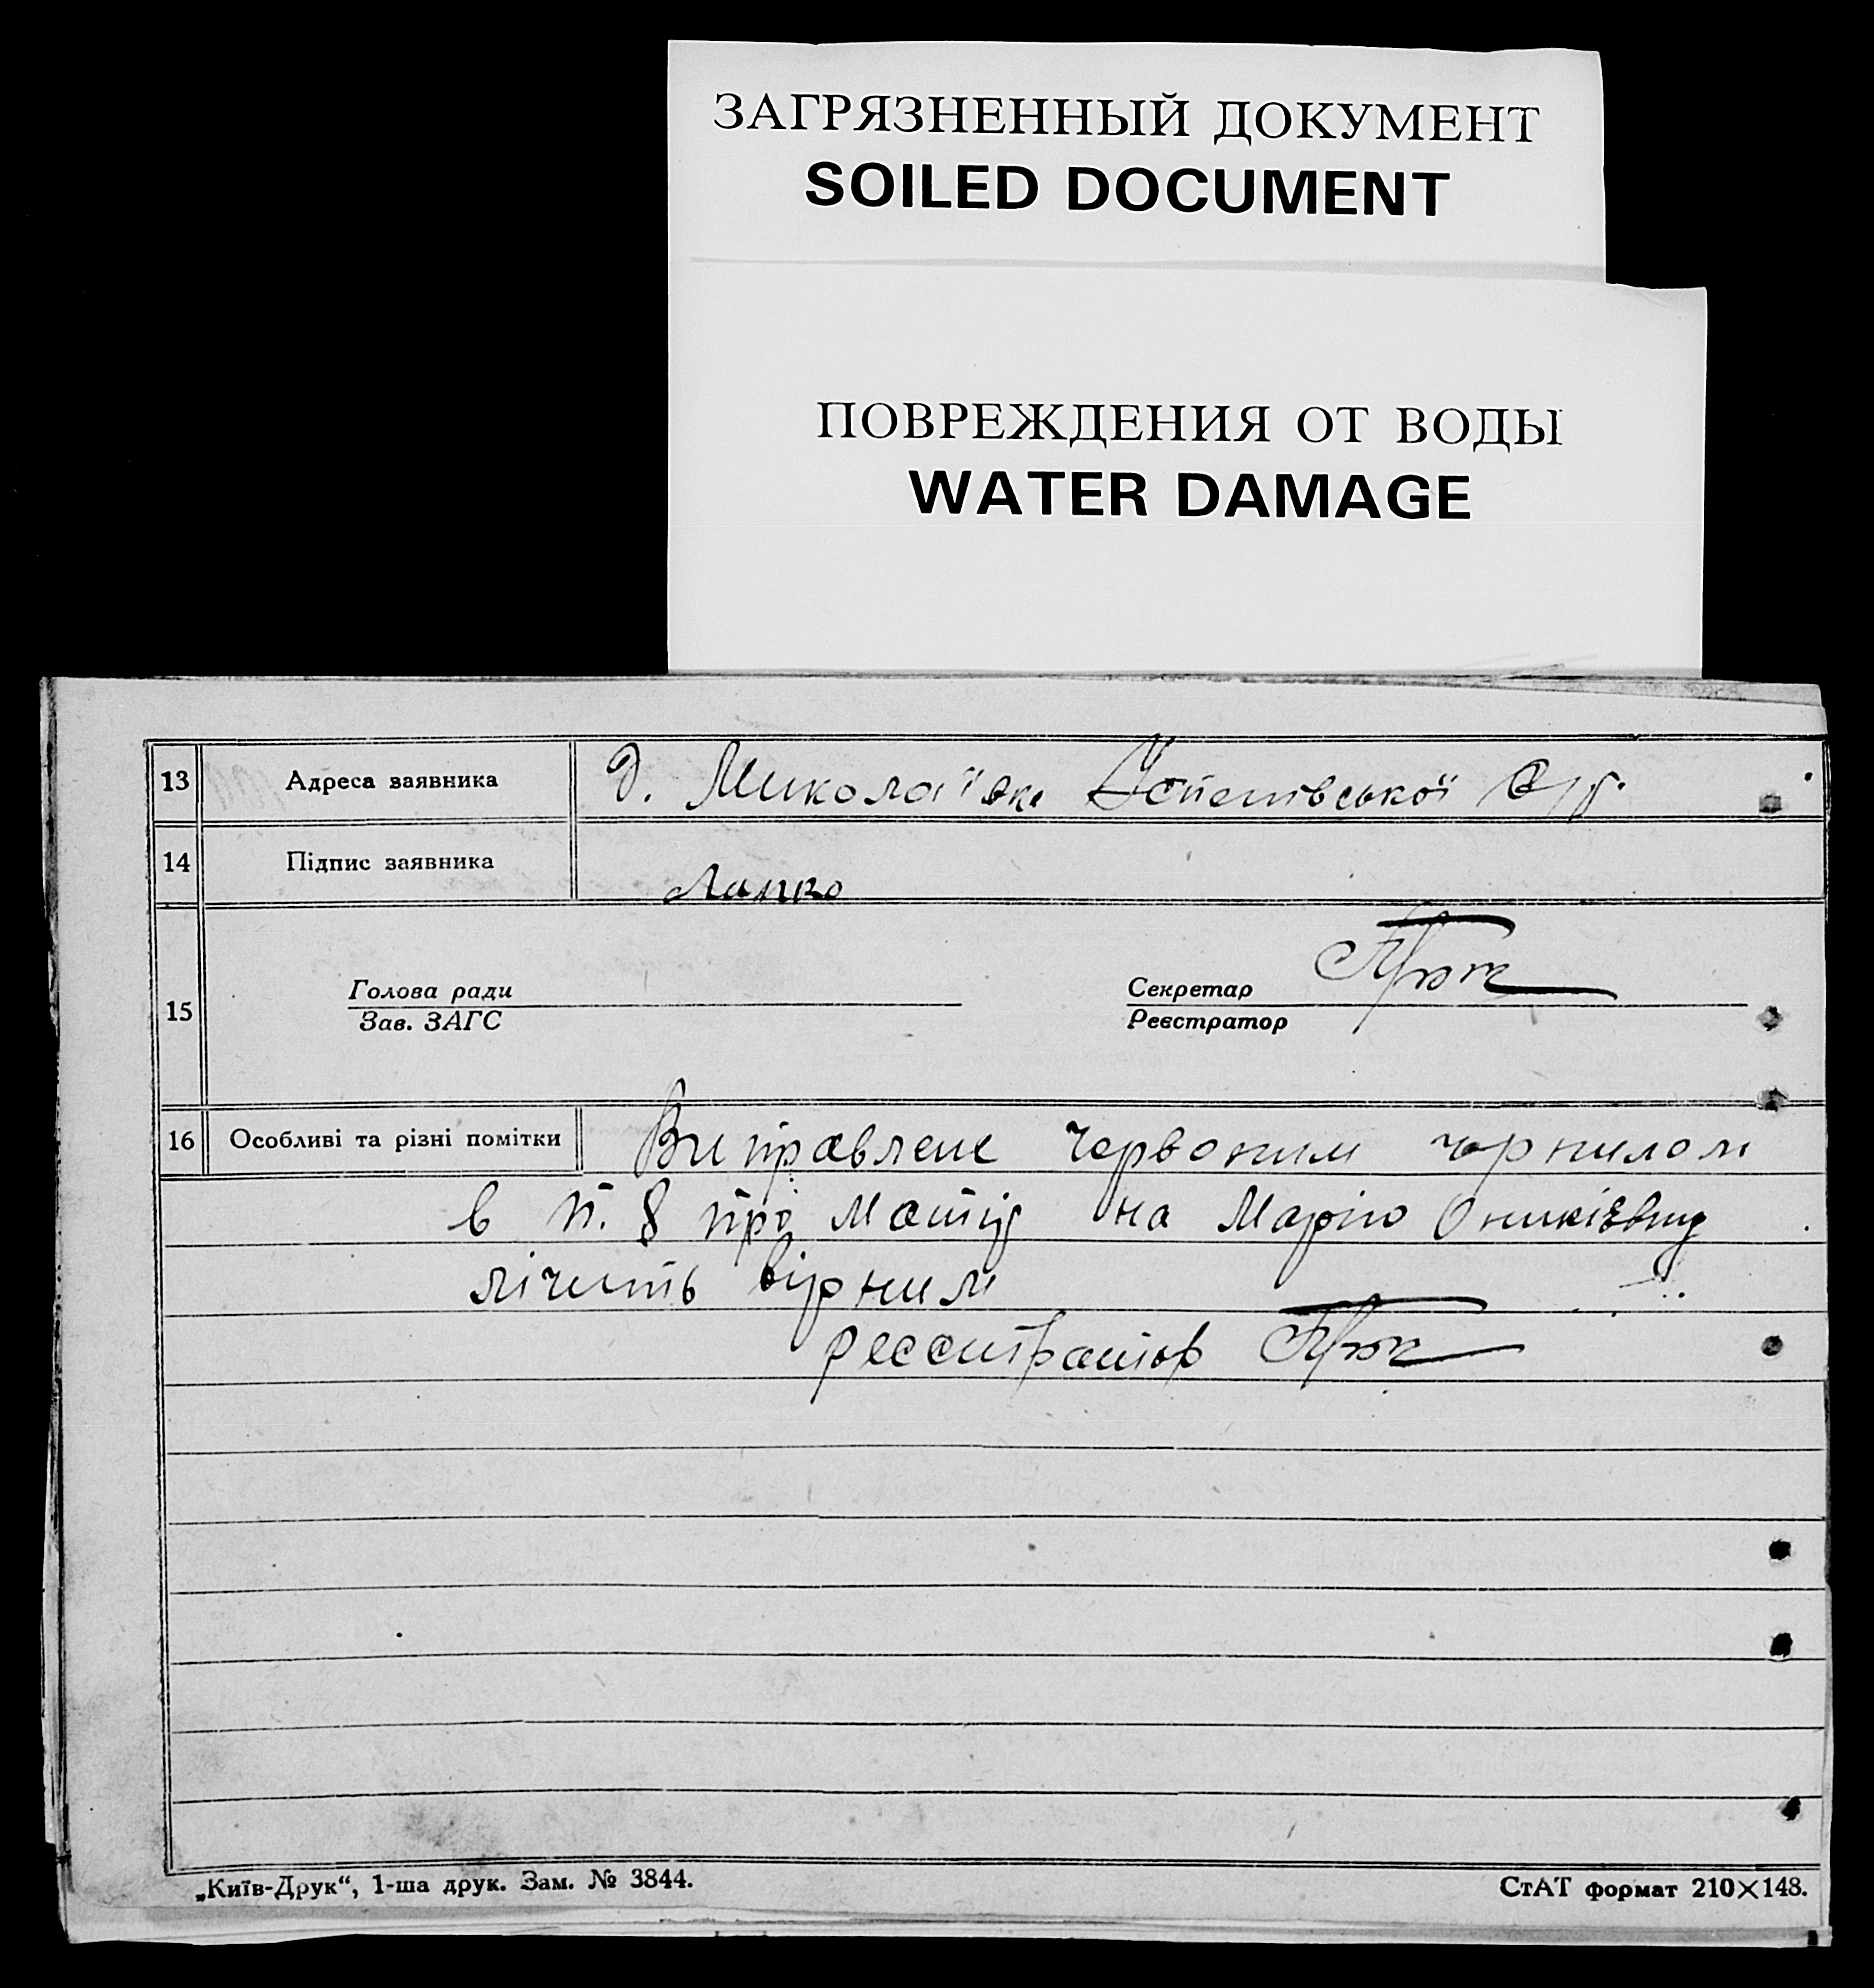 ЗАГРЯЗНЕННЫЙ ДОКУМЕНТ
SOILED DOCUMENT
ПОВРЕЖДЕНИЯ ОТ ВОДЫ
WATER DAMAGE
13 Адреса заявника д. Миколаївка
14 Підпис заявника Лапко
15 Голова ради Секретар
Зав. ЗАГС Реєстратор
16 Особливі та різні помітки Виправлене червоним чорнилом
в п. 8 про матір на Марію Оникіївну
лічить вірним
реєстратор
„Київ-Друк“, 1-ша друк. Зам. № 3844. СтАТ формат 210×148.